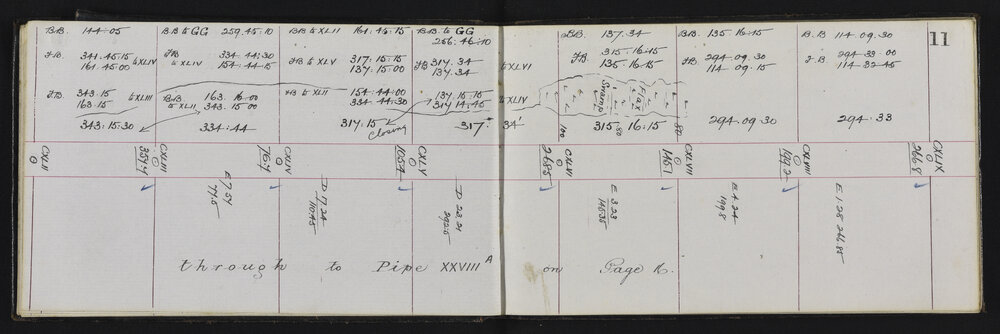 B.B. 144.05 B B to GG 259.45.10 B B to XLII 161.45.15 B.B. to GG 137.34 B.B. 135.16.15 B.B 114.09.30 11
256.46.10
F.B. 341.45.15 to XLIV F.B. to XLIV 334.44.30 F.B to XLV 317.15.15 F.B 317.34 to XLVI F.B. 315.16.15 F.B. 294.09.30 F.B 294.33.00
161.45.00 154.44.15 137.15.00 137.34 135.16.15 114.09.15 114.32.45
F.B. 343.15 to XLIII B.B. to XLII 163.16.00 F.B to XLII 154.44.00 137.15.15 to XLIV Swamp Flax
163.15 343.15.00 334.44.30 317.14.45
343.15.30 334.44 317.15 317. 34' 100 315. 80 16.15 80 294.09.30 294.33
Closing
CXLII CXLIII CXLIV CXLV CXLVII CXLVIII CXLIX
O O O O O O O O
E 7.24 D 17.24 D 23.21 E 3.23 E 1.28
775 1045 2925 1998
through to Pipe XXVIII A on Page